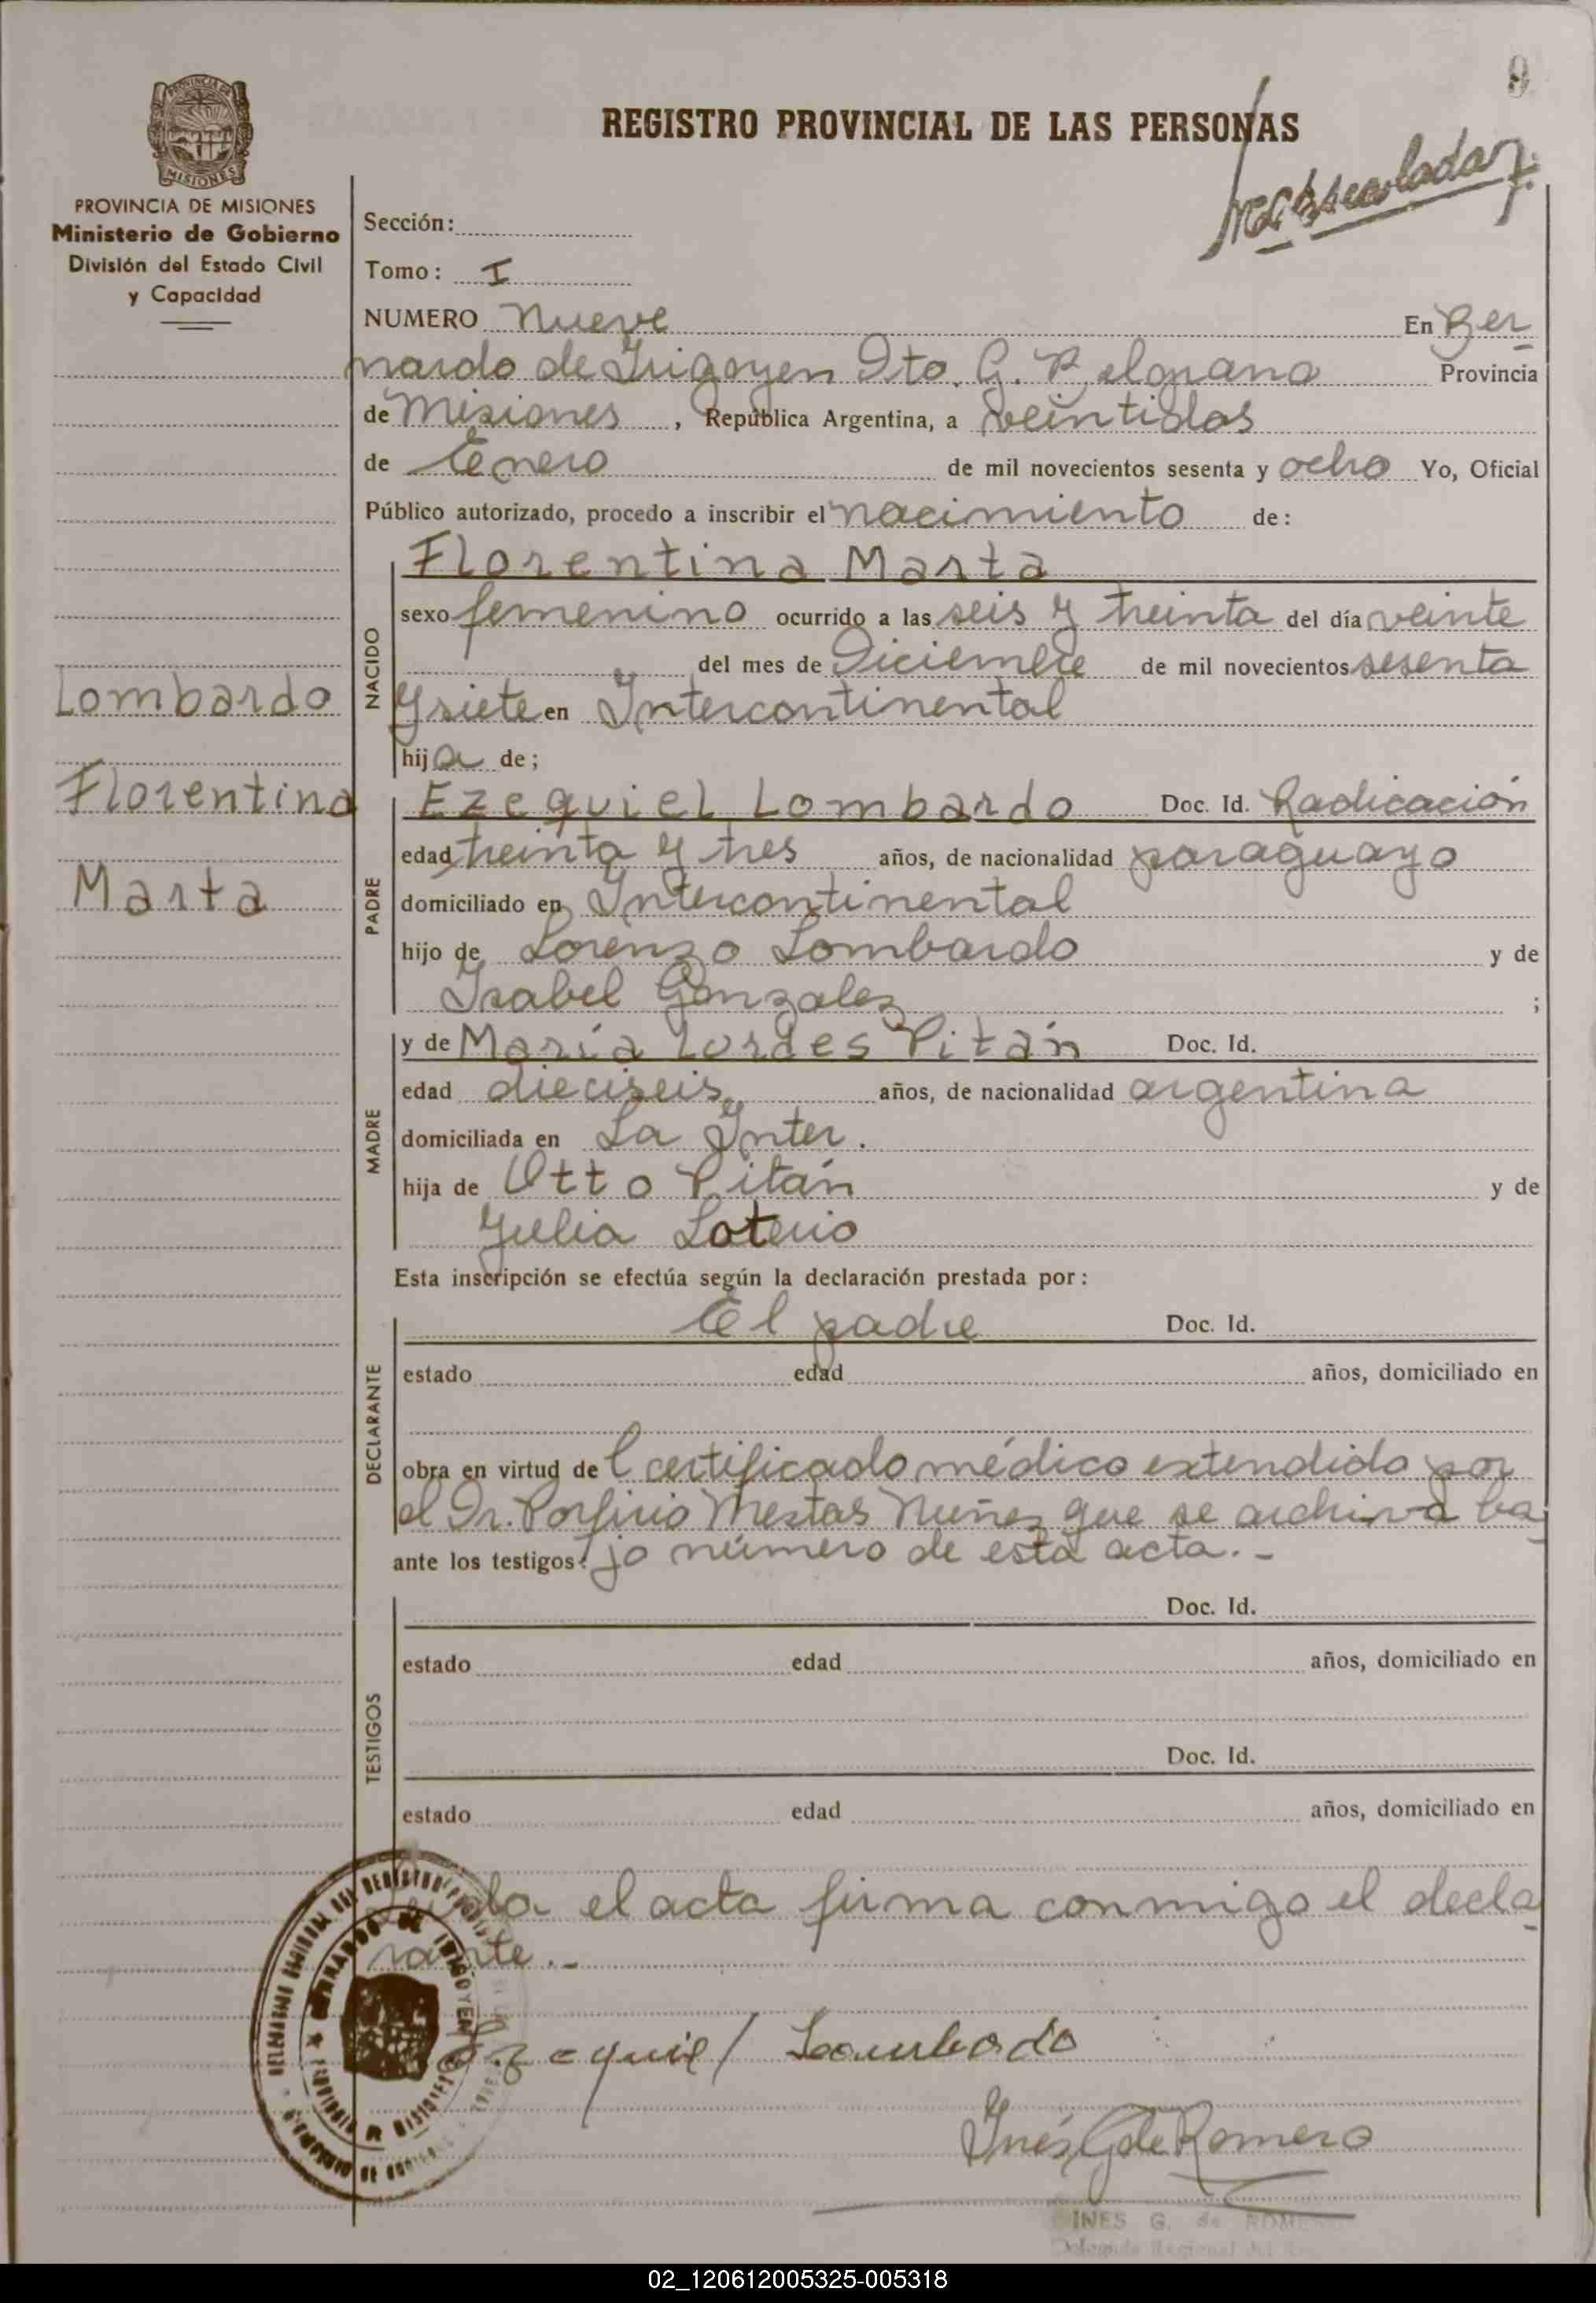 9
REGISTRO PROVINCIAL DE LAS PERSONAS
PROVINCIA DE MISIONES
MISIONES
PROVINCIA DE MISIONES
Ministerio de Gobierno
División del Estado Civil
y Capacidad
Sección:
Tomo: I
NUMERO Nueve En Ber
nardo de Irigoyen Dto. G. Belgrano Provincia
de Misiones, República Argentina, a veintidos
de Enero de mil novecientos sesenta y ocho Yo, Oficial
Público autorizado, procedo a inscribir el nacimiento de:
Florentina Marta
NACIDO
sexo femenino ocurrido a las seis y treinta del día veinte
del mes de Diciembre de mil novecientos sesenta
y siete en Intercontinental
hija de;
Lombardo
Florentina
Marta
PADRE
Ezequiel Lombardo Doc. Id. Radicación
edad treinta y tres años, de nacionalidad paraguayo
domiciliado en Intercontinental
hijo de Lorenzo Lombardo y de
Isabel Gonzalez ;
MADRE
y de María Lordes Pitán Doc. Id.
edad dieciseis años, de nacionalidad argentina
domiciliada en La Inter.
hija de Otto Pitán y de
Julia Soterio
Esta inscripción se efectúa según la declaración prestada por:
DECLARANTE
El padre Doc. Id.
estado edad años, domiciliado en
obra en virtud del certificado médico extendido por
el Dr. Porfirio Mestas Nuñez que se archiva ba
ante los testigos: jo número de esta acta.-
TESTIGOS
Doc. Id.
estado edad años, domiciliado en
Doc. Id.
estado edad años, domiciliado en
el acta firma conmigo el decla
rante.-
Ezequiel Lombardo
Inés G de Romero
INES G. de ROMERO
Delegada Regional del
BERNARDO DE IRIGOYEN
02_120612005325-005318